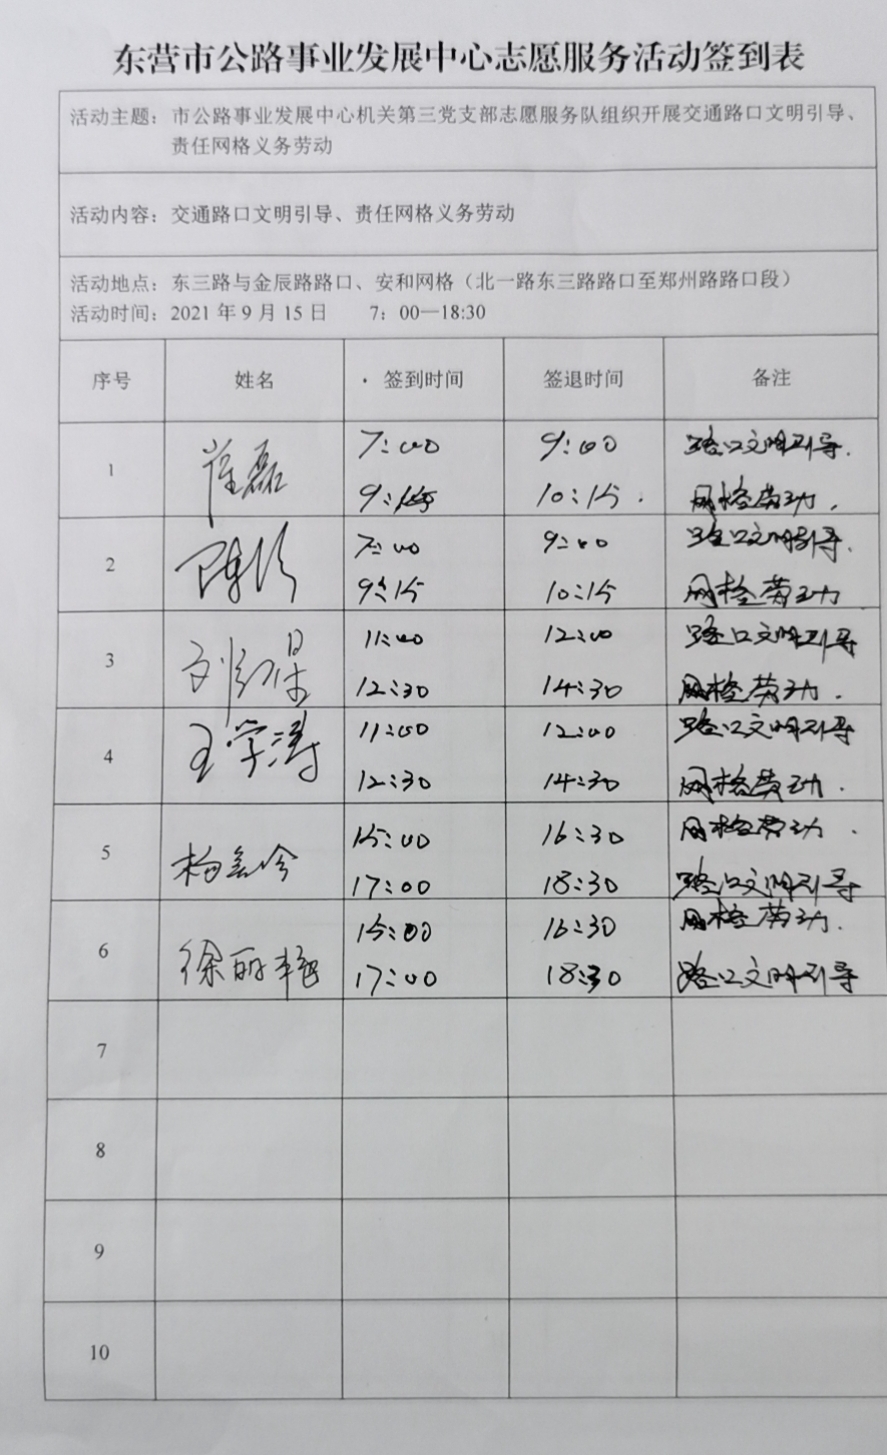 东营市公路事业发展中心志愿服务活动签到表
活动主题：市公路事业发展中心机关第三党支部志愿服务队组织开展交通路口文明引导、
责任网格义务劳动
活动内容：交通路口文明引导、责任网格义务劳动
活动地点：东三路与金辰路路口、安和网格（北一路东三路路口至郑州路路口段）
活动时间：2021年9月15日 7：00—18:30
序号 姓名 签到时间 签退时间 备注
1 磊 7:00 9:00 路口文明引导.
9:15 10:15. 网格劳动.
2 陈 7:00 9:00 路口文明引导.
9:15 10:15 网格劳动
3 刘 11:00 12:00 路口文明引导
12:30 14:30 网格劳动.
4 王学涛 11:00 12:00 路口文明引导
12:30 14:30 网格劳动.
5 杨 15:00 16:30 网格劳动.
17:00 18:30 路口文明引导
6 徐丽艳 15:00 16:30 网格劳动.
17:00 18:30 路口文明引导
7
8
9
10